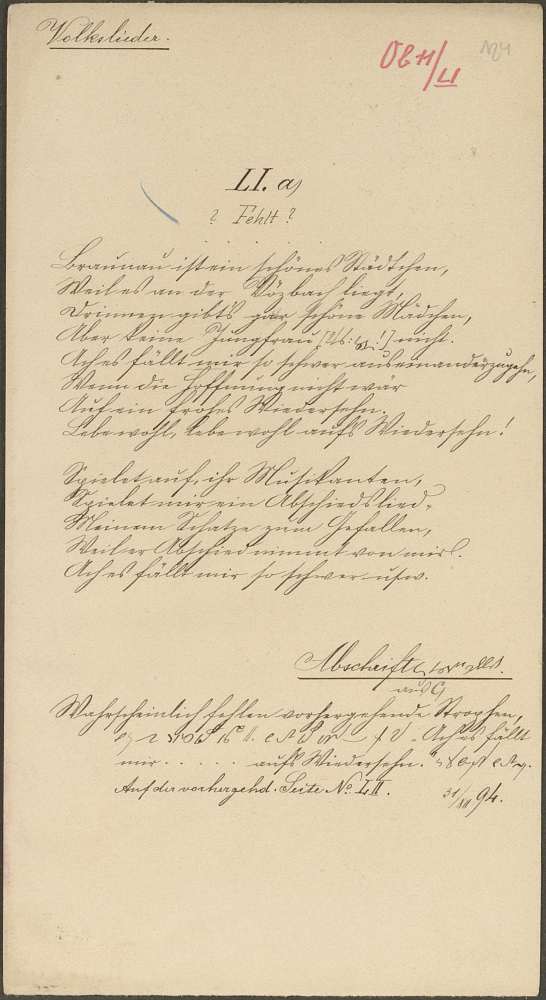 Volkslieder.
LI. a)
? Fehlt ?
Braunau ist ein schönes Städtchen,
Weil es an der liegt,
Drinnen gibt's gar schöne Mädchen,
Aber keine Jungfrau nicht.
Ach es fällt mir so schwer auseinanderzugehn,
Wenn die Hoffnung nicht war
Auf ein frohes Wiedersehn.
Lebewohl, Lebewohl aufs Wiedersehn!
Spielet auf, ihr Musikanten,
Spielet mir ein Abschiedslied.
Meinem Schatze zum Gefallen,
Weil er Abschied nimmt von mir.
Ach es fällt mir so schwer usw.
Abschrift
aus G
Wahrscheinlich fehlen vorhergehende Strophen,
Ach es fällt
mir . . . . . aufs Wiedersehn.
Auf der vorhergehd. Seite No. LII.
31/XII 94.